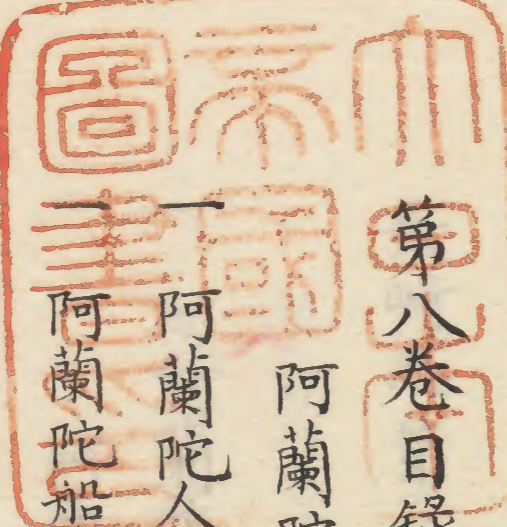 第八卷目録
阿蘭陀
一阿蘭陀人
一阿蘭陀船